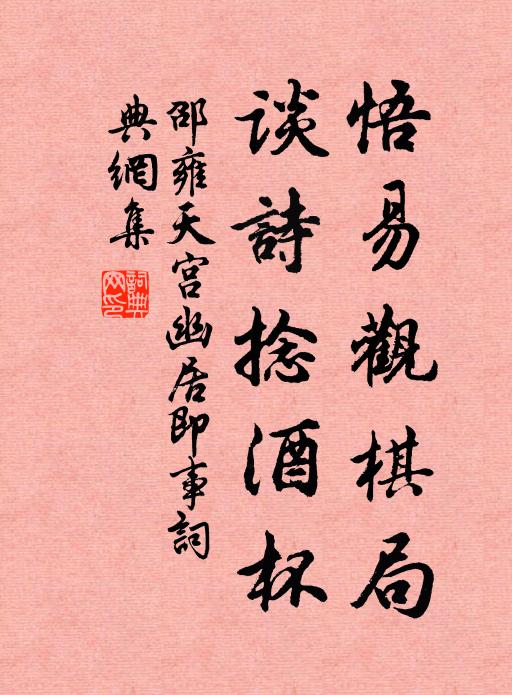 悟易觀棋局
談詩捻酒杯
邵雍天宫幽居即事詞
典網集
詞典网印